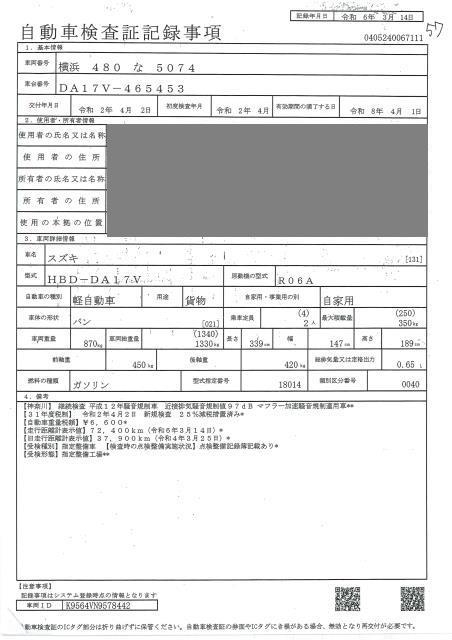 記録年月日 令和 6年 3月 14日
自動車検査証記録事項
57
0405240067111
1. 基本情報
車両番号 横浜 480 な 5074
車台番号 DA17V-465453
交付年月日 令和 2年 4月 2日 初度検査年月 令和 2年 4月 有効期間の満了する日 令和 8年 4月 1日
2. 使用者・所有者情報
使用者の氏名又は名称
使用者の住所
所有者の氏名又は名称
所有者の住所
使用の本拠の位置
3. 車両詳細情報
車名 スズキ [131]
型式 HBD-DA17V 原動機の型式 R06A
自動車の種別 軽自動車 用途 貨物 自家用・事業用の別 自家用
車体の形状 バン [021] 乗車定員 (4) 2人 最大積載量 (250) 350kg
車両重量 870kg 車両総重量 (1340) 1330kg 長さ 339cm 幅 147cm 高さ 189cm
前軸重 450kg 後軸重 420kg 総排気量又は定格出力 0.65 L
燃料の種類 ガソリン 型式指定番号 18014 類別区分番号 0040
4. 備考
【神奈川】 継続検査 平成12年騒音規制車 近接排気騒音規制値97dB マフラー加速騒音規制適用車**
【31年度税制】 令和2年4月2日 新規検査 25%減税措置済み*
【自動車重量税額】 ¥6,600*
【走行距離計表示値】 72,400km (令和6年3月14日)*
【旧走行距離計表示値】 37,900km (令和4年3月25日)*
【受検種別】指定整備車 【検査時の点検整備実施状況】点検整備記録簿記載あり*
【受検形態】指定整備工場**
【注意事項】
記録事項はシステム登録時点の情報となります
車両ID K9564VN9578442
自動車検査証のICタグ部分は折り曲げずに保管ください。自動車検査証の券面やICタグにき損がある場合、無効となり再交付が必要です。